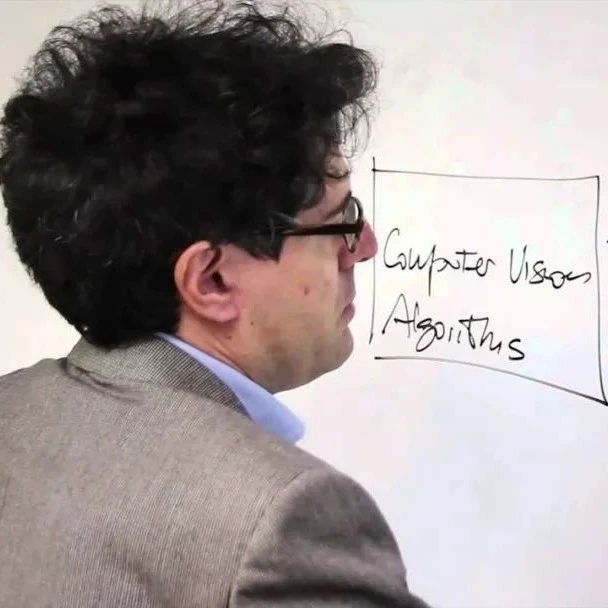 Computer Vision
Algorithms